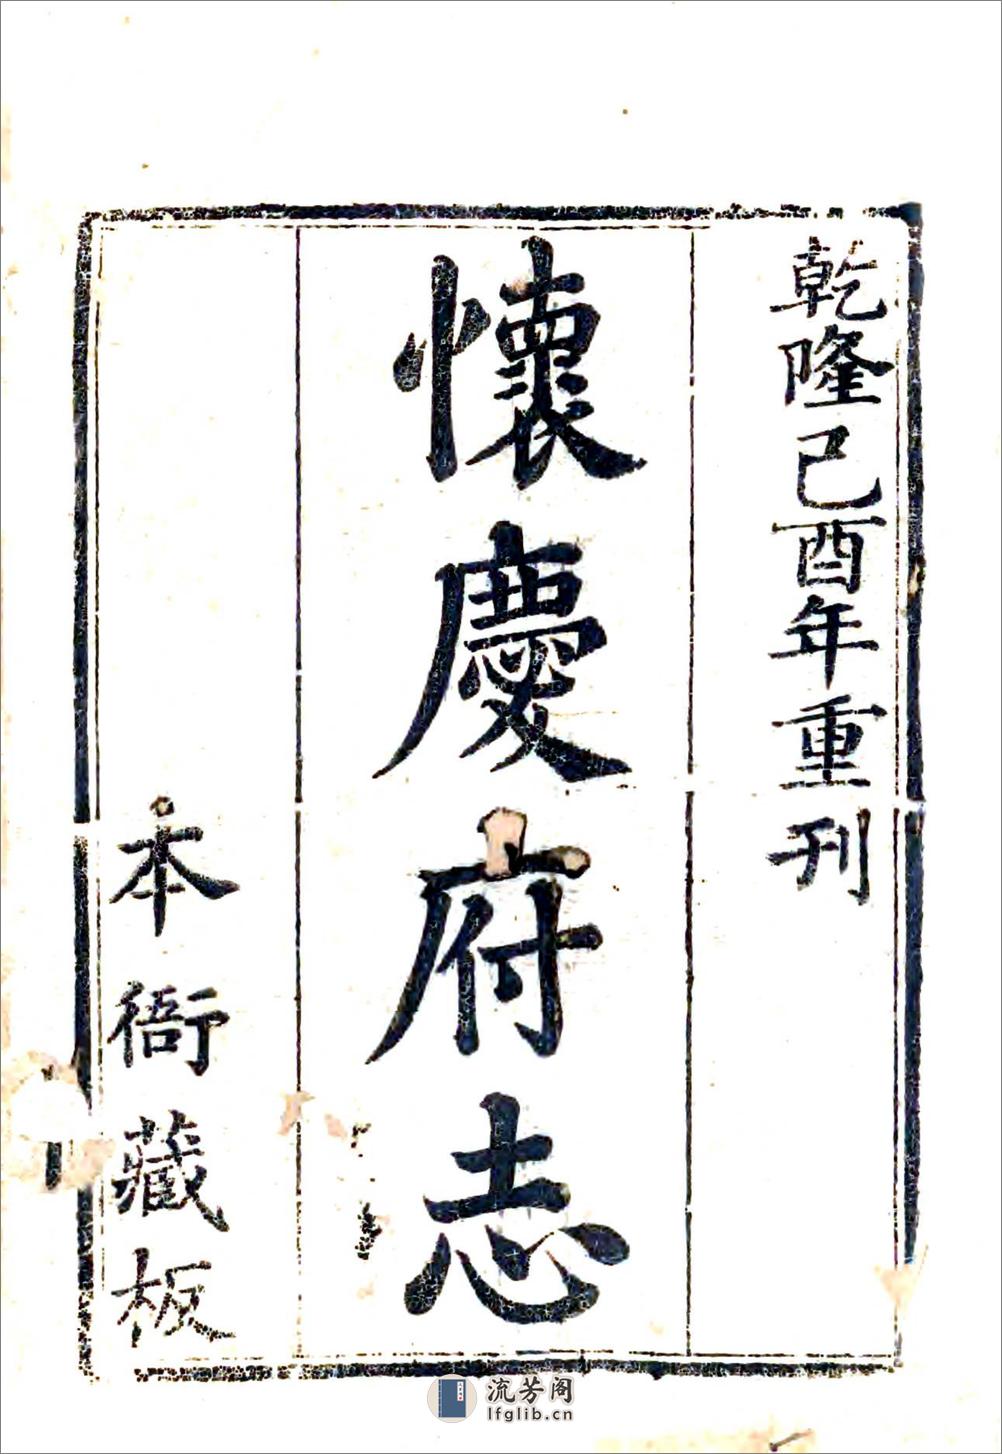 乾隆己酉年重刊
懷慶府志
本衙藏板
流芳阁
lfglib.cn